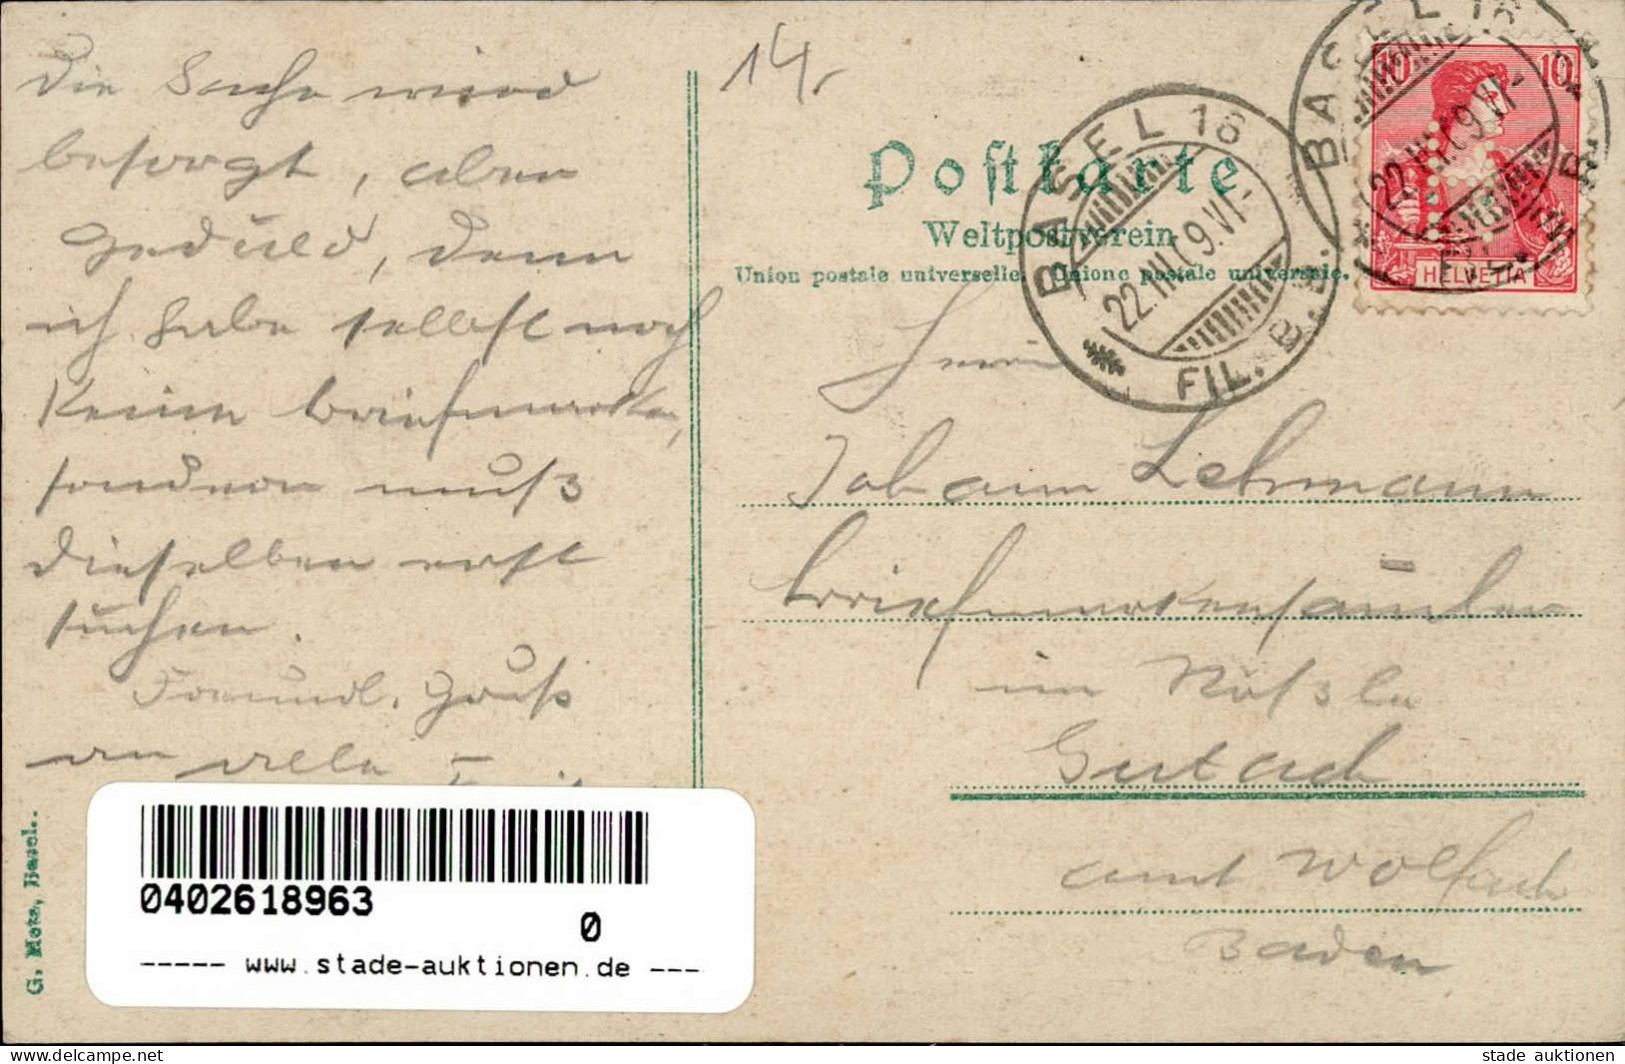 Die Sache wird
besorgt, aber
Geduld, denn
ich habe selbst noch
Keine Briefmarken,
sondern muß
dieselben erst
suchen.
Freundl. Gruß
an alle
14,
Postkarte
Weltpostverein
Union postale universelle. Unione postale universale.
BASEL 18
22.III.09.VI-
FIL. B.B.
BASEL 18
22.III.09.VI-
10
10
HELVETIA
Herrn
Johann Lehmann
Briefmarkensammler
im Rößle
Gutach
Amt Wolfach
Baden
G. Metz, Basel.
0402618963
0
----- www.stade-auktionen.de ---
www.delcampe.net
stade auktionen